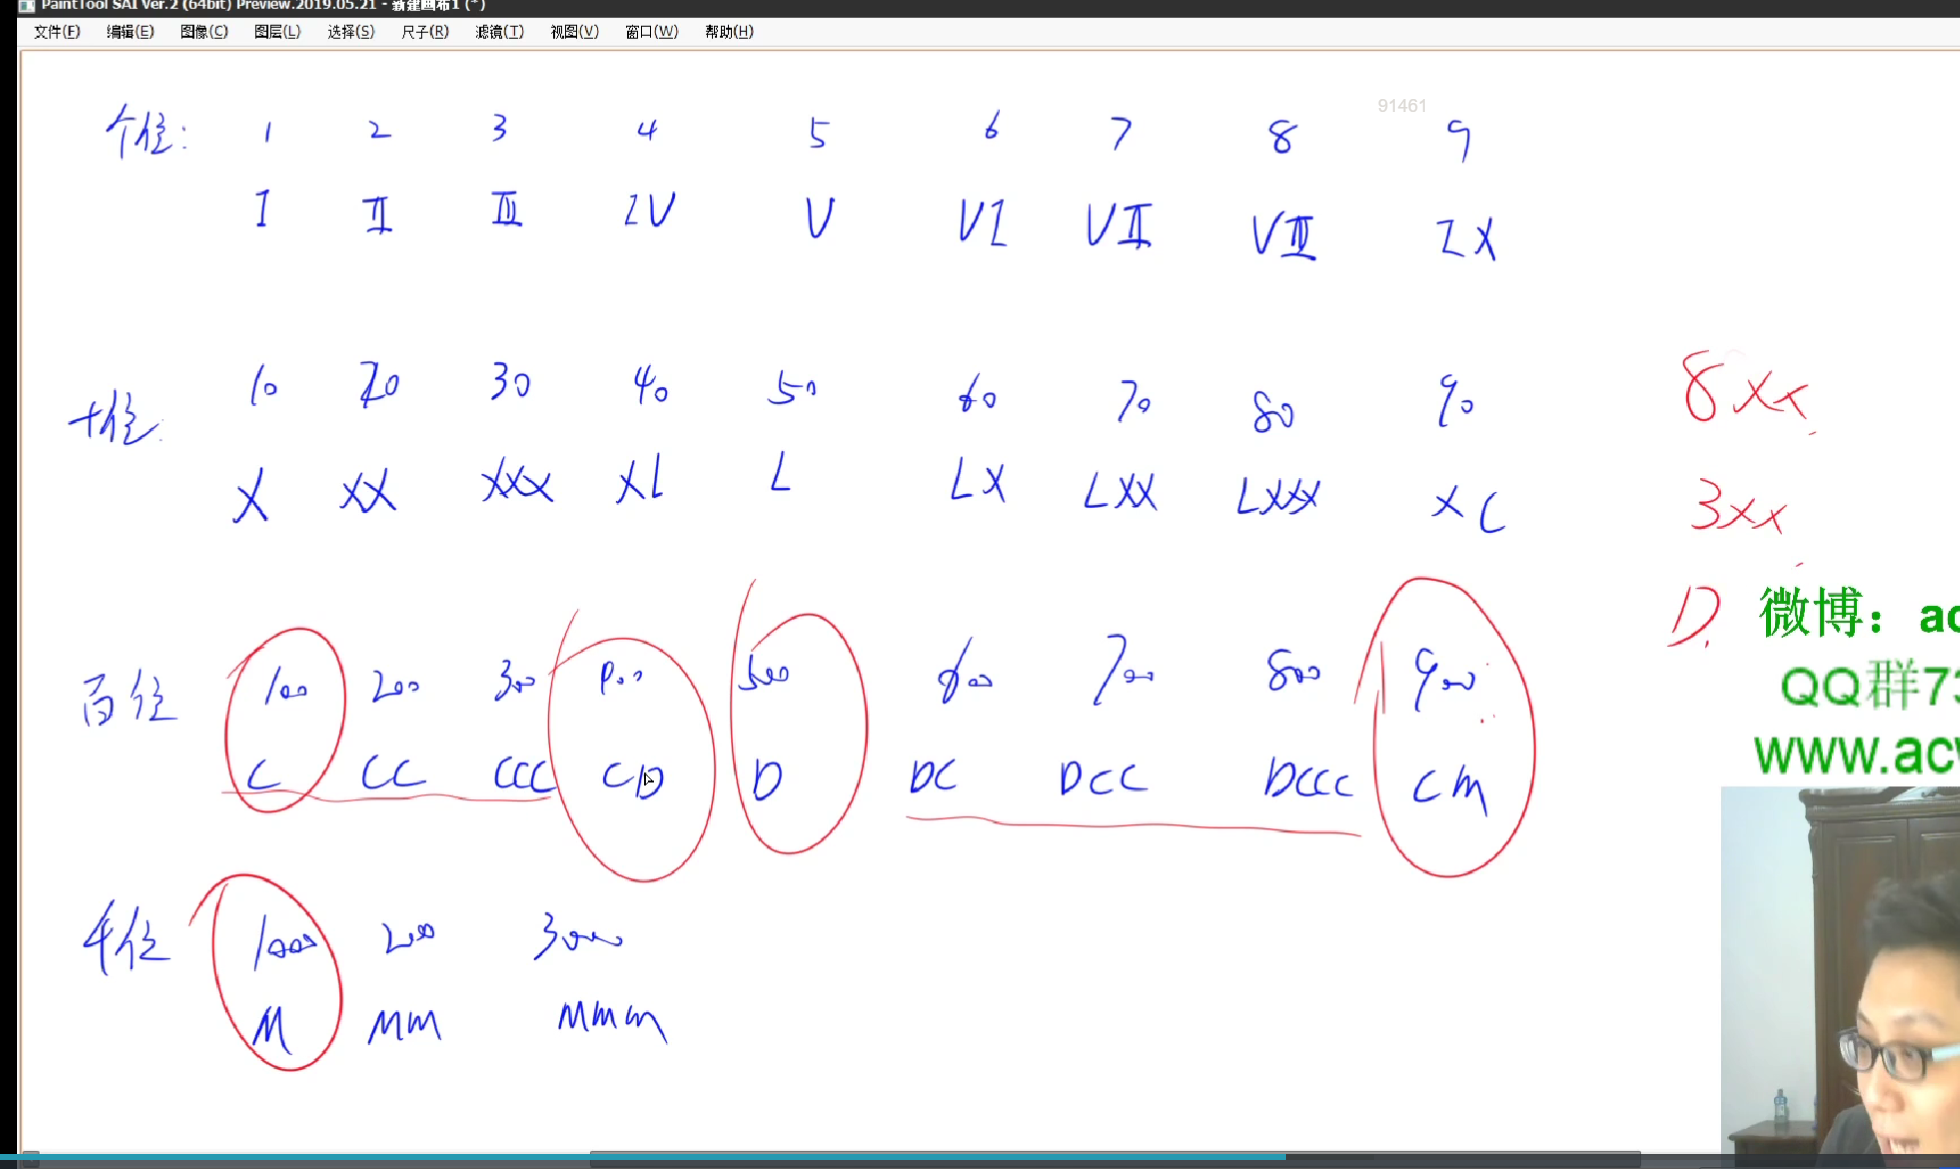 PaintTool SAI Ver.2 (64bit) Preview.2019.05.21 - 新建画布1 (*)
文件(F) 编辑(E) 图像(C) 图层(L) 选择(S) 尺子(R) 滤镜(T) 视图(V) 窗口(W) 帮助(H)
91461
个位: 1 2 3 4 5 6 7 8 9
I II III IV V VI VII VIII IX
十位: 10 20 30 40 50 60 70 80 90
X XX XXX XL L LX LXX LXXX XC
8xx
3xx
D
微博: ac
QQ群73
www.acw
百位 100 200 300 400 500 600 700 800 900
C CC CCC CD D DC DCC DCCC CM
千位 1000 200 3000
M MM MMM